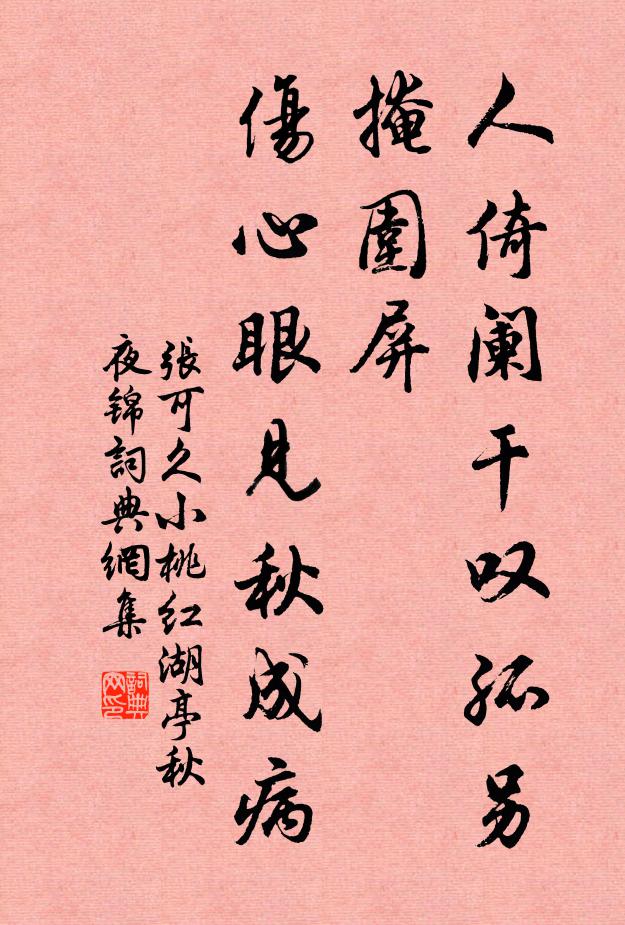 人倚阑干叹孤另
掩圍屏
傷心眼見秋成病
張可久小桃红湖亭秋
夜锦詞典網集
詞典
网印